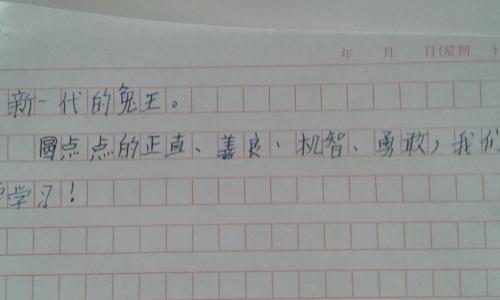 年 月 日(星期 )
新一代的兔王。
圆点点的正直、善良、机智、勇敢,我们
学习!